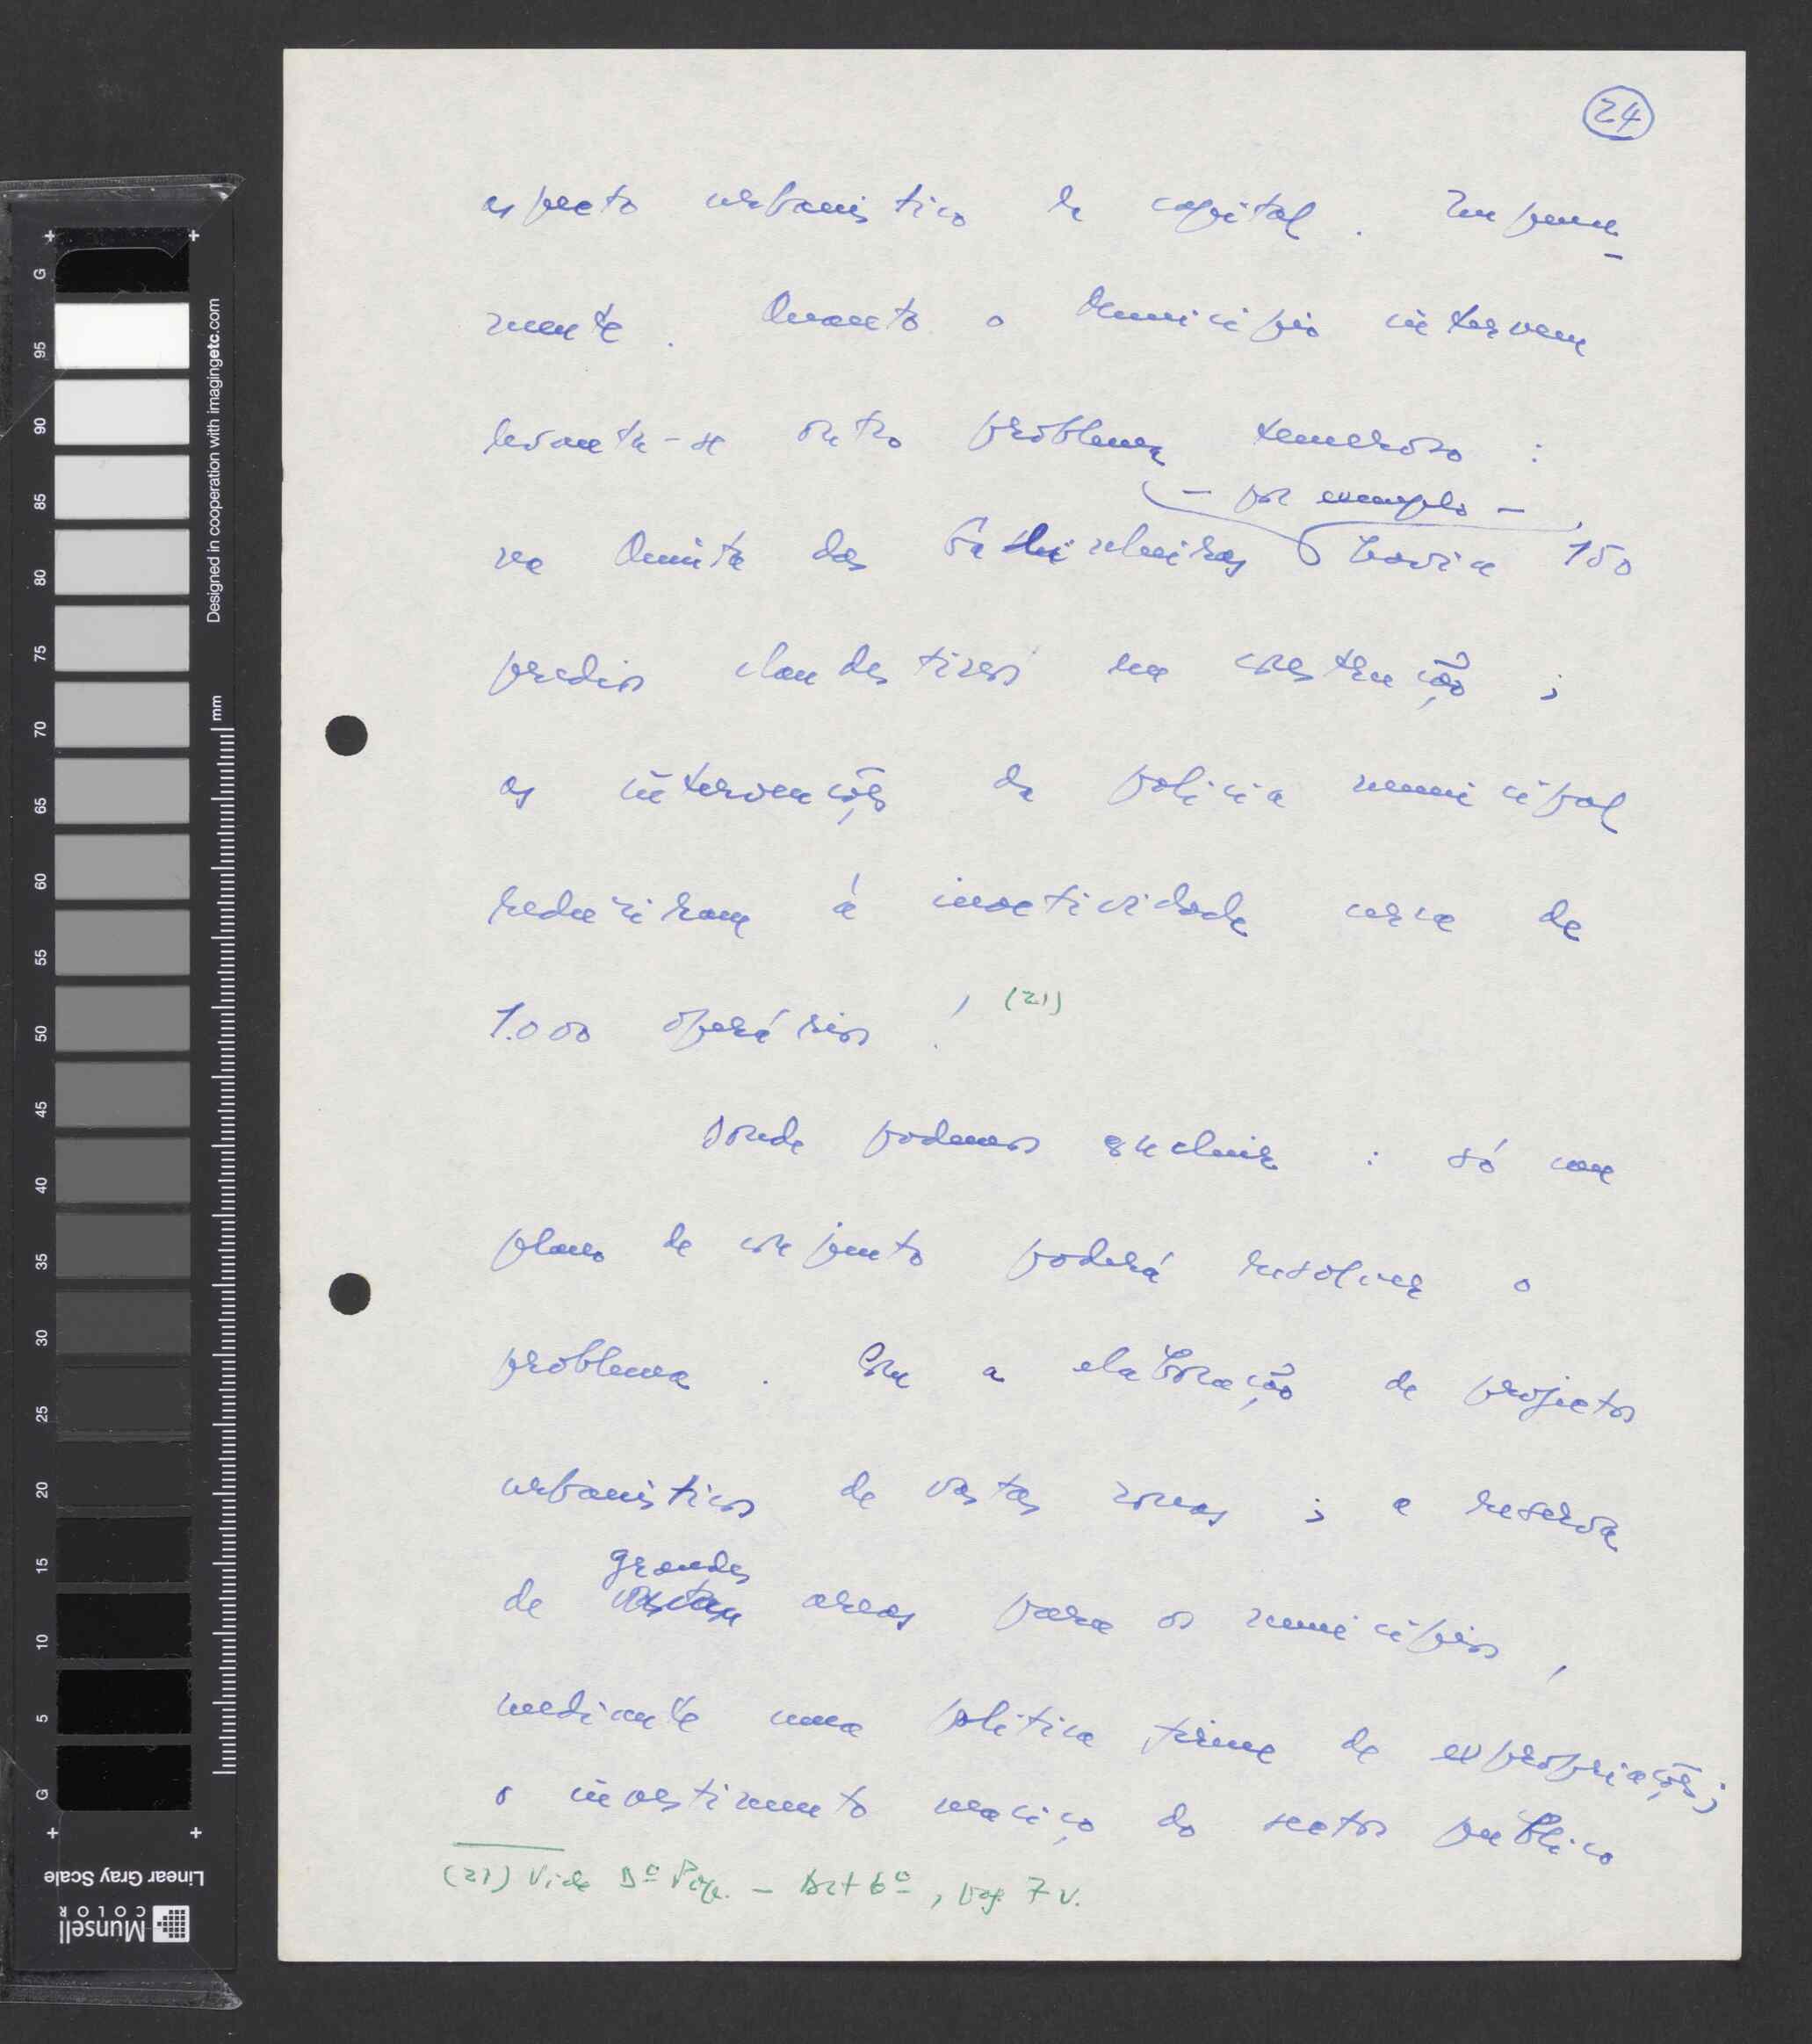 24
aspecto urbanistico da capital. Impune-
mente. Quanto o Municipio intervem
levanta-se outro problema temeroso :
— por exemplo —
na Quinta das havia 150
predios clandestinos na construção ;
as intervenções da policia municipal
reduziram á inactividade cerca de
1.000 operários ! (21)
Donde podemos concluir : só um
plano de conjunto poderá resolver o
problema . Com a elaboração de projectos
urbanisticos de vastas zonas ; a reserva
grandes
de vastas areas para os municipios ,
mediante uma politica firme de expropriações ;
o investimento maciço do sector público
(21) Vide Dº Pop. — 6º , pag. 7 v.
Designed in cooperation with imagingetc.com
mm
G 95 90 85 80 75 70 65 60 55 50 45 40 35 30 25 20 15 10 5 G
Linear Gray Scale
Munsell
COLOR